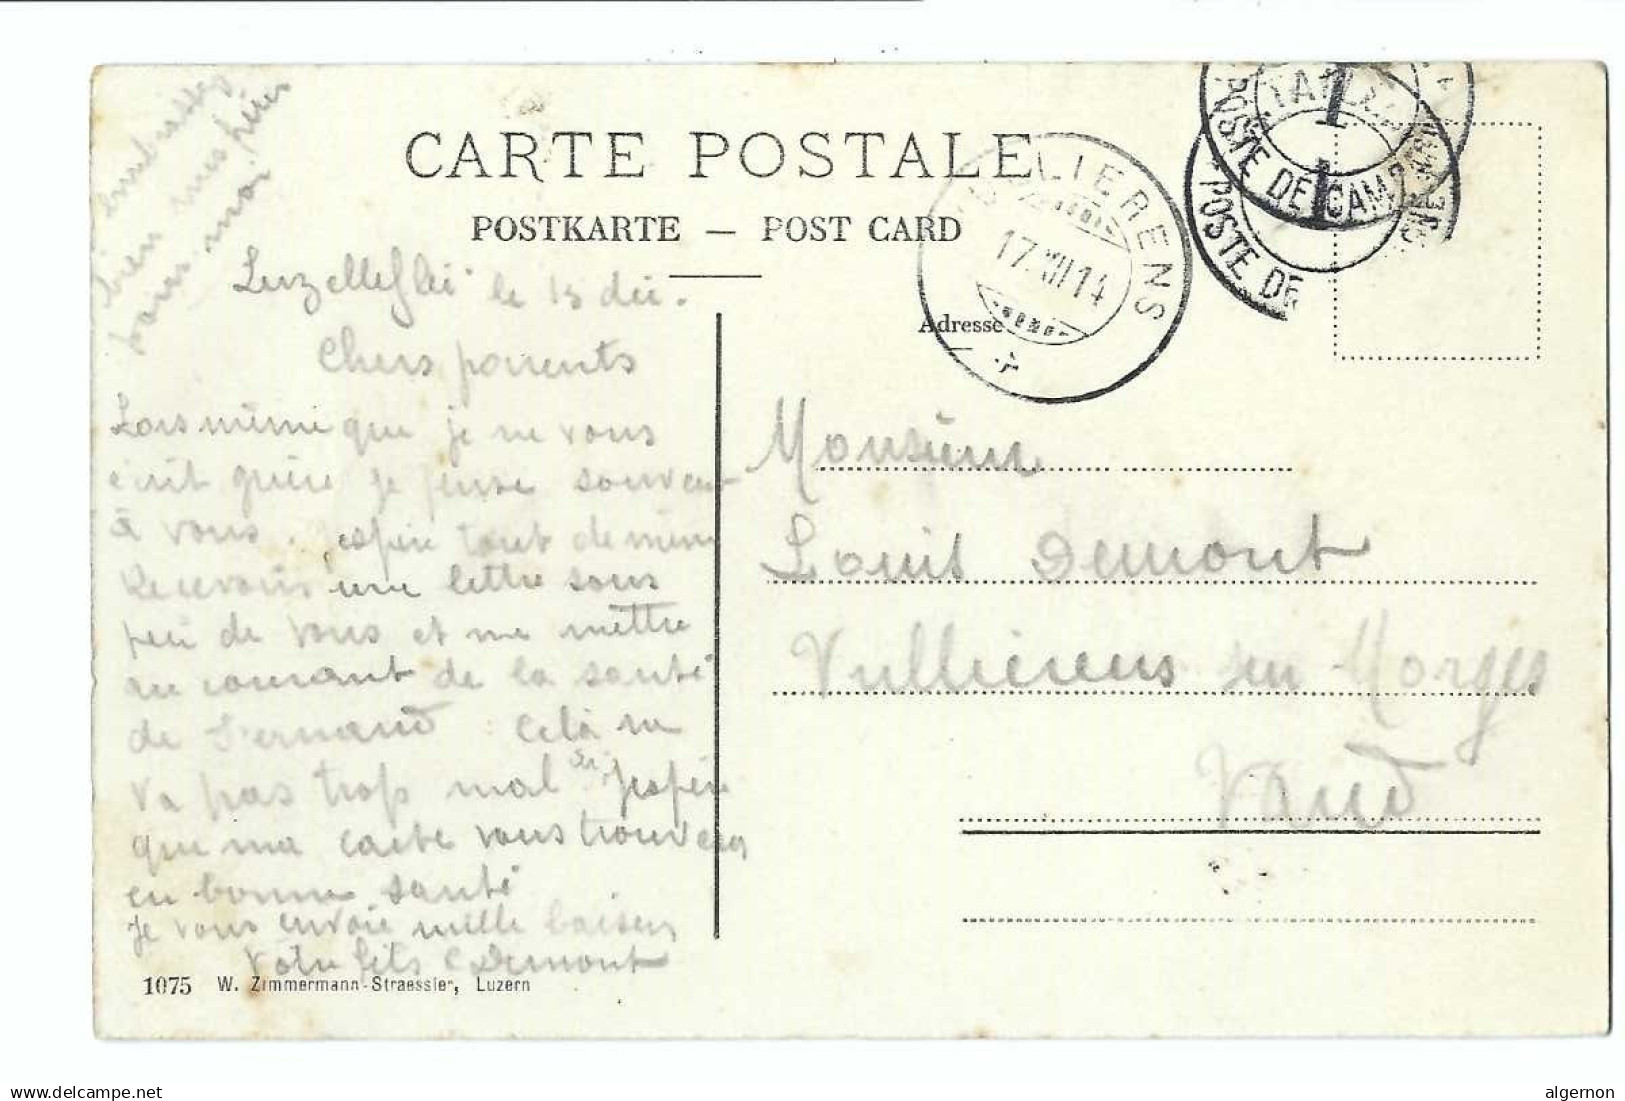 embrassez
bien mes frères
pour moi
CARTE POSTALE
POSTKARTE — POST CARD
VULLIERENS
17.XII14
POSTE DE CAMPAGNE
1
POSTE DE
1
le 15 déc.
Chers parents
Lors même que je ne vous
écrit guère je pense souvent
à vous. j'espère tout de même
recevoir une lettre sous
peu de vous et me mettre
au courant de la santé
de Fernand. Celà ne
va pas trop mal ici, j'espère
que ma carte vous trouvera
en bonne santé
Je vous envoie mille baisers
Votre fils C Demont
Adresse
Monsieur
Louis Demont
Vullierens sur Morges
Vaud
1075 W. Zimmermann-Straessler, Luzern
www.delcampe.net
algernon